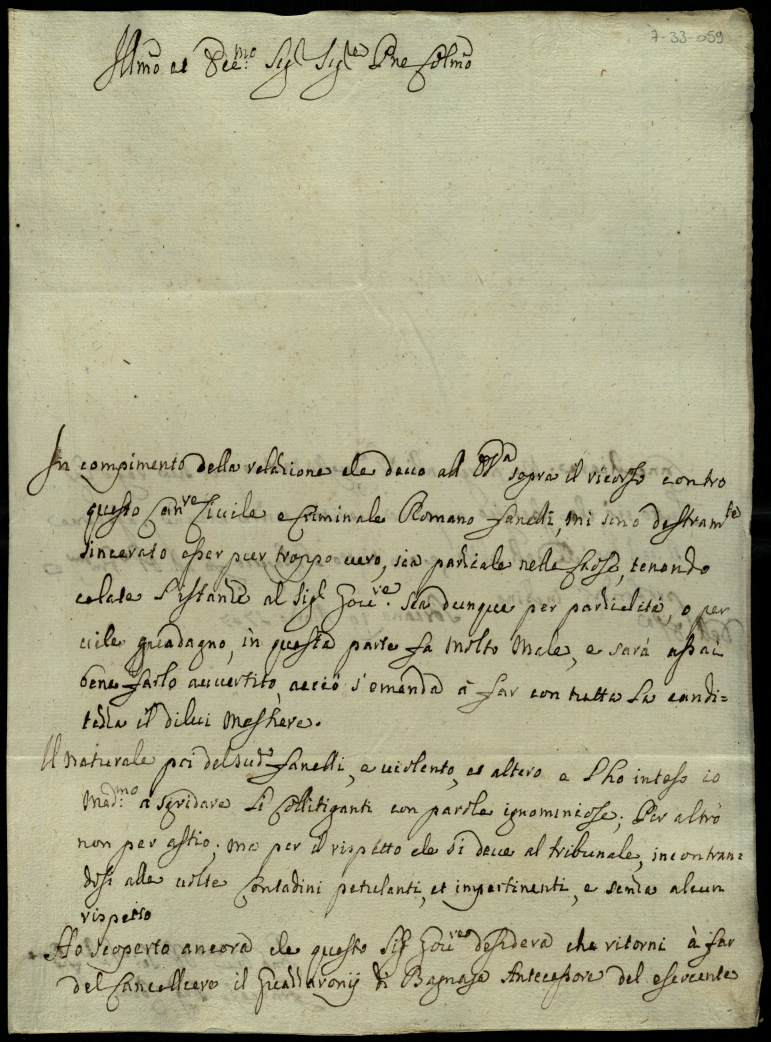 7-33-059
Illmo et Ecc:mo Sigr Sigr Pne Colmo
In compimento della relazione che devo all' E Va sopra il ricorso contro
questo Canre Civile e Criminale Romano Fanelli, mi sono destramte
sincerato esser pur troppo vero, sia parziale nelle Cose, tenendo
celate l'istanze al Sigr Goure. Sia dunque per parzialità, o per
vile guadagno, in questa parte fà molto male, e sarà assai
bene farlo avvertito, acciò s'emenda à far con tutta la candi=
tezza il dilui mestiere.
Il naturale poi del sudo Fanelli, e violento, et altero e l'ho inteso io
medmo à sgridare li Collitiganti con parole ignominiose; Per altro
non per astio; ma per il rispetto che si deve al tribunale, incontran=
dosi alle volte Contadini petulanti, et impertinenti, e senza alcun
rispetto
Ho scoperto ancora che questo Sigr Goure desidera che ritorni à far
del Cancelliere il Guazzaronij di Bagnaja Antecessore del esercente